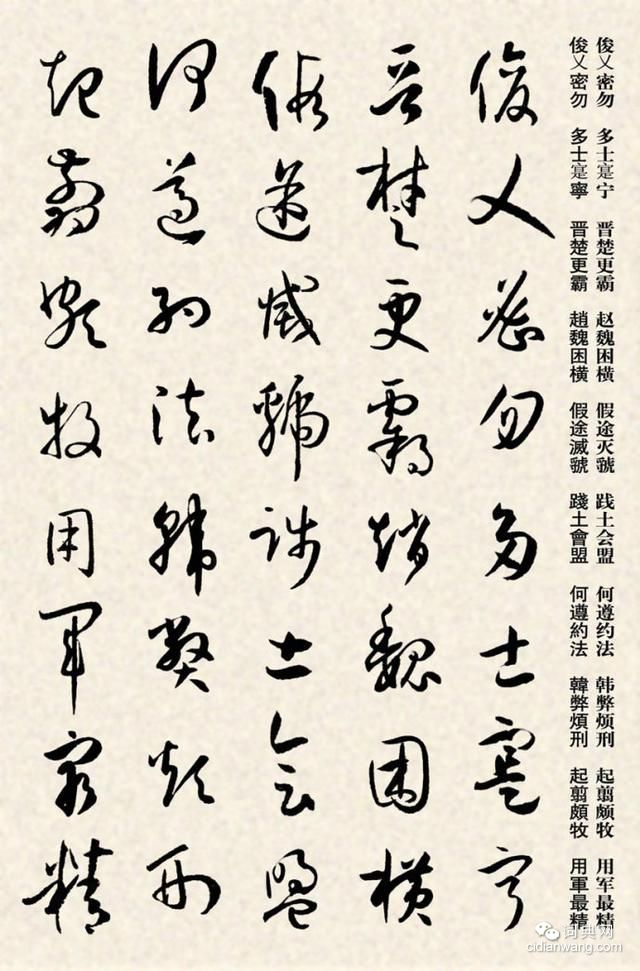 俊乂密勿 多士寔宁 晋楚更霸 赵魏困横 假途灭虢 践土会盟 何遵约法 韩弊烦刑 起翦颇牧 用军最精
俊乂密勿 多士寔寧 晋楚更霸 趙魏困橫 假途滅虢 踐土會盟 何遵約法 韓弊煩刑 起翦頗牧 用軍最精
俊乂密勿多士寔寧
晋楚更霸趙魏困橫
假途滅虢踐土會盟
何遵約法韓弊煩刑
起翦頗牧用軍最精
词典网
cidianwang.com